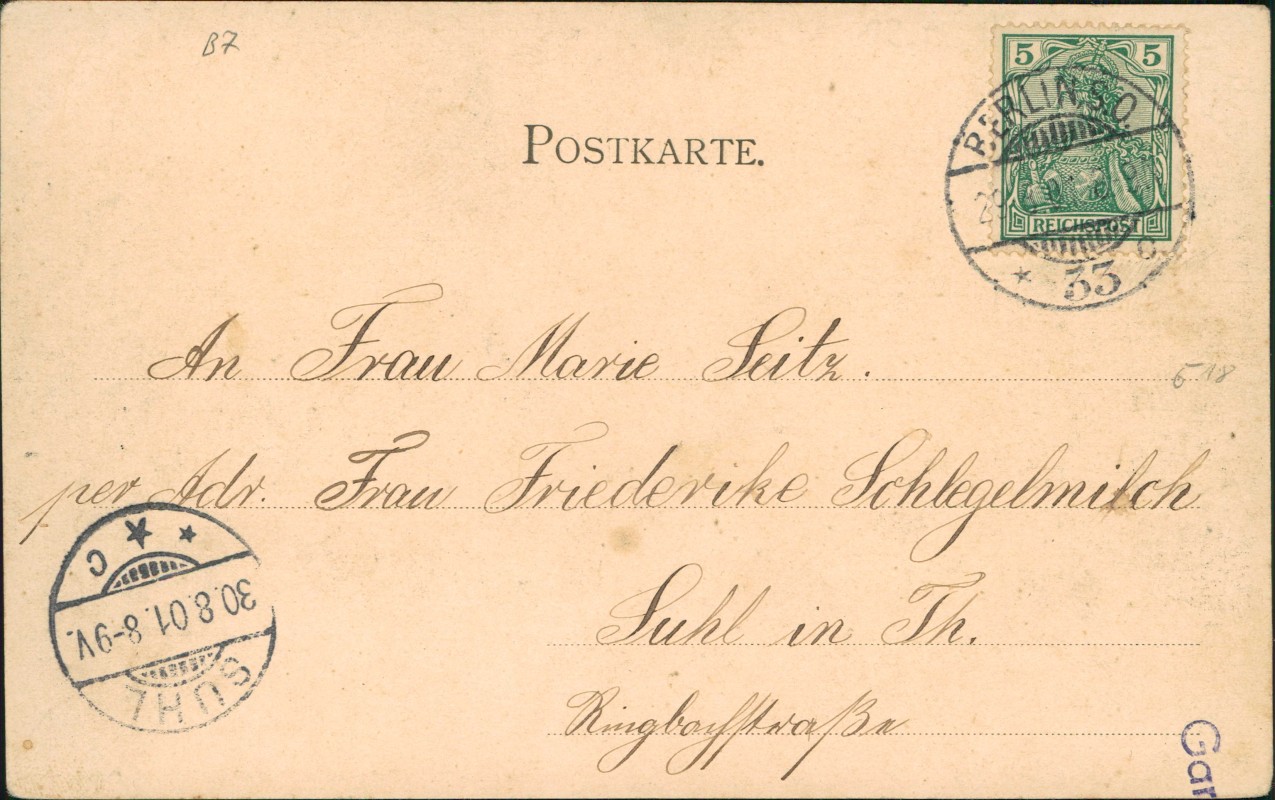 B7
5 5
BERLIN S.O.
REICHSPOST
33 c.
POSTKARTE.
An Frau Marie Seitz.
518
per Adr. Frau Friederike Schlegelmilch
Suhl in Th.
C
30.8.01.8-9V.
SUHL
Gar